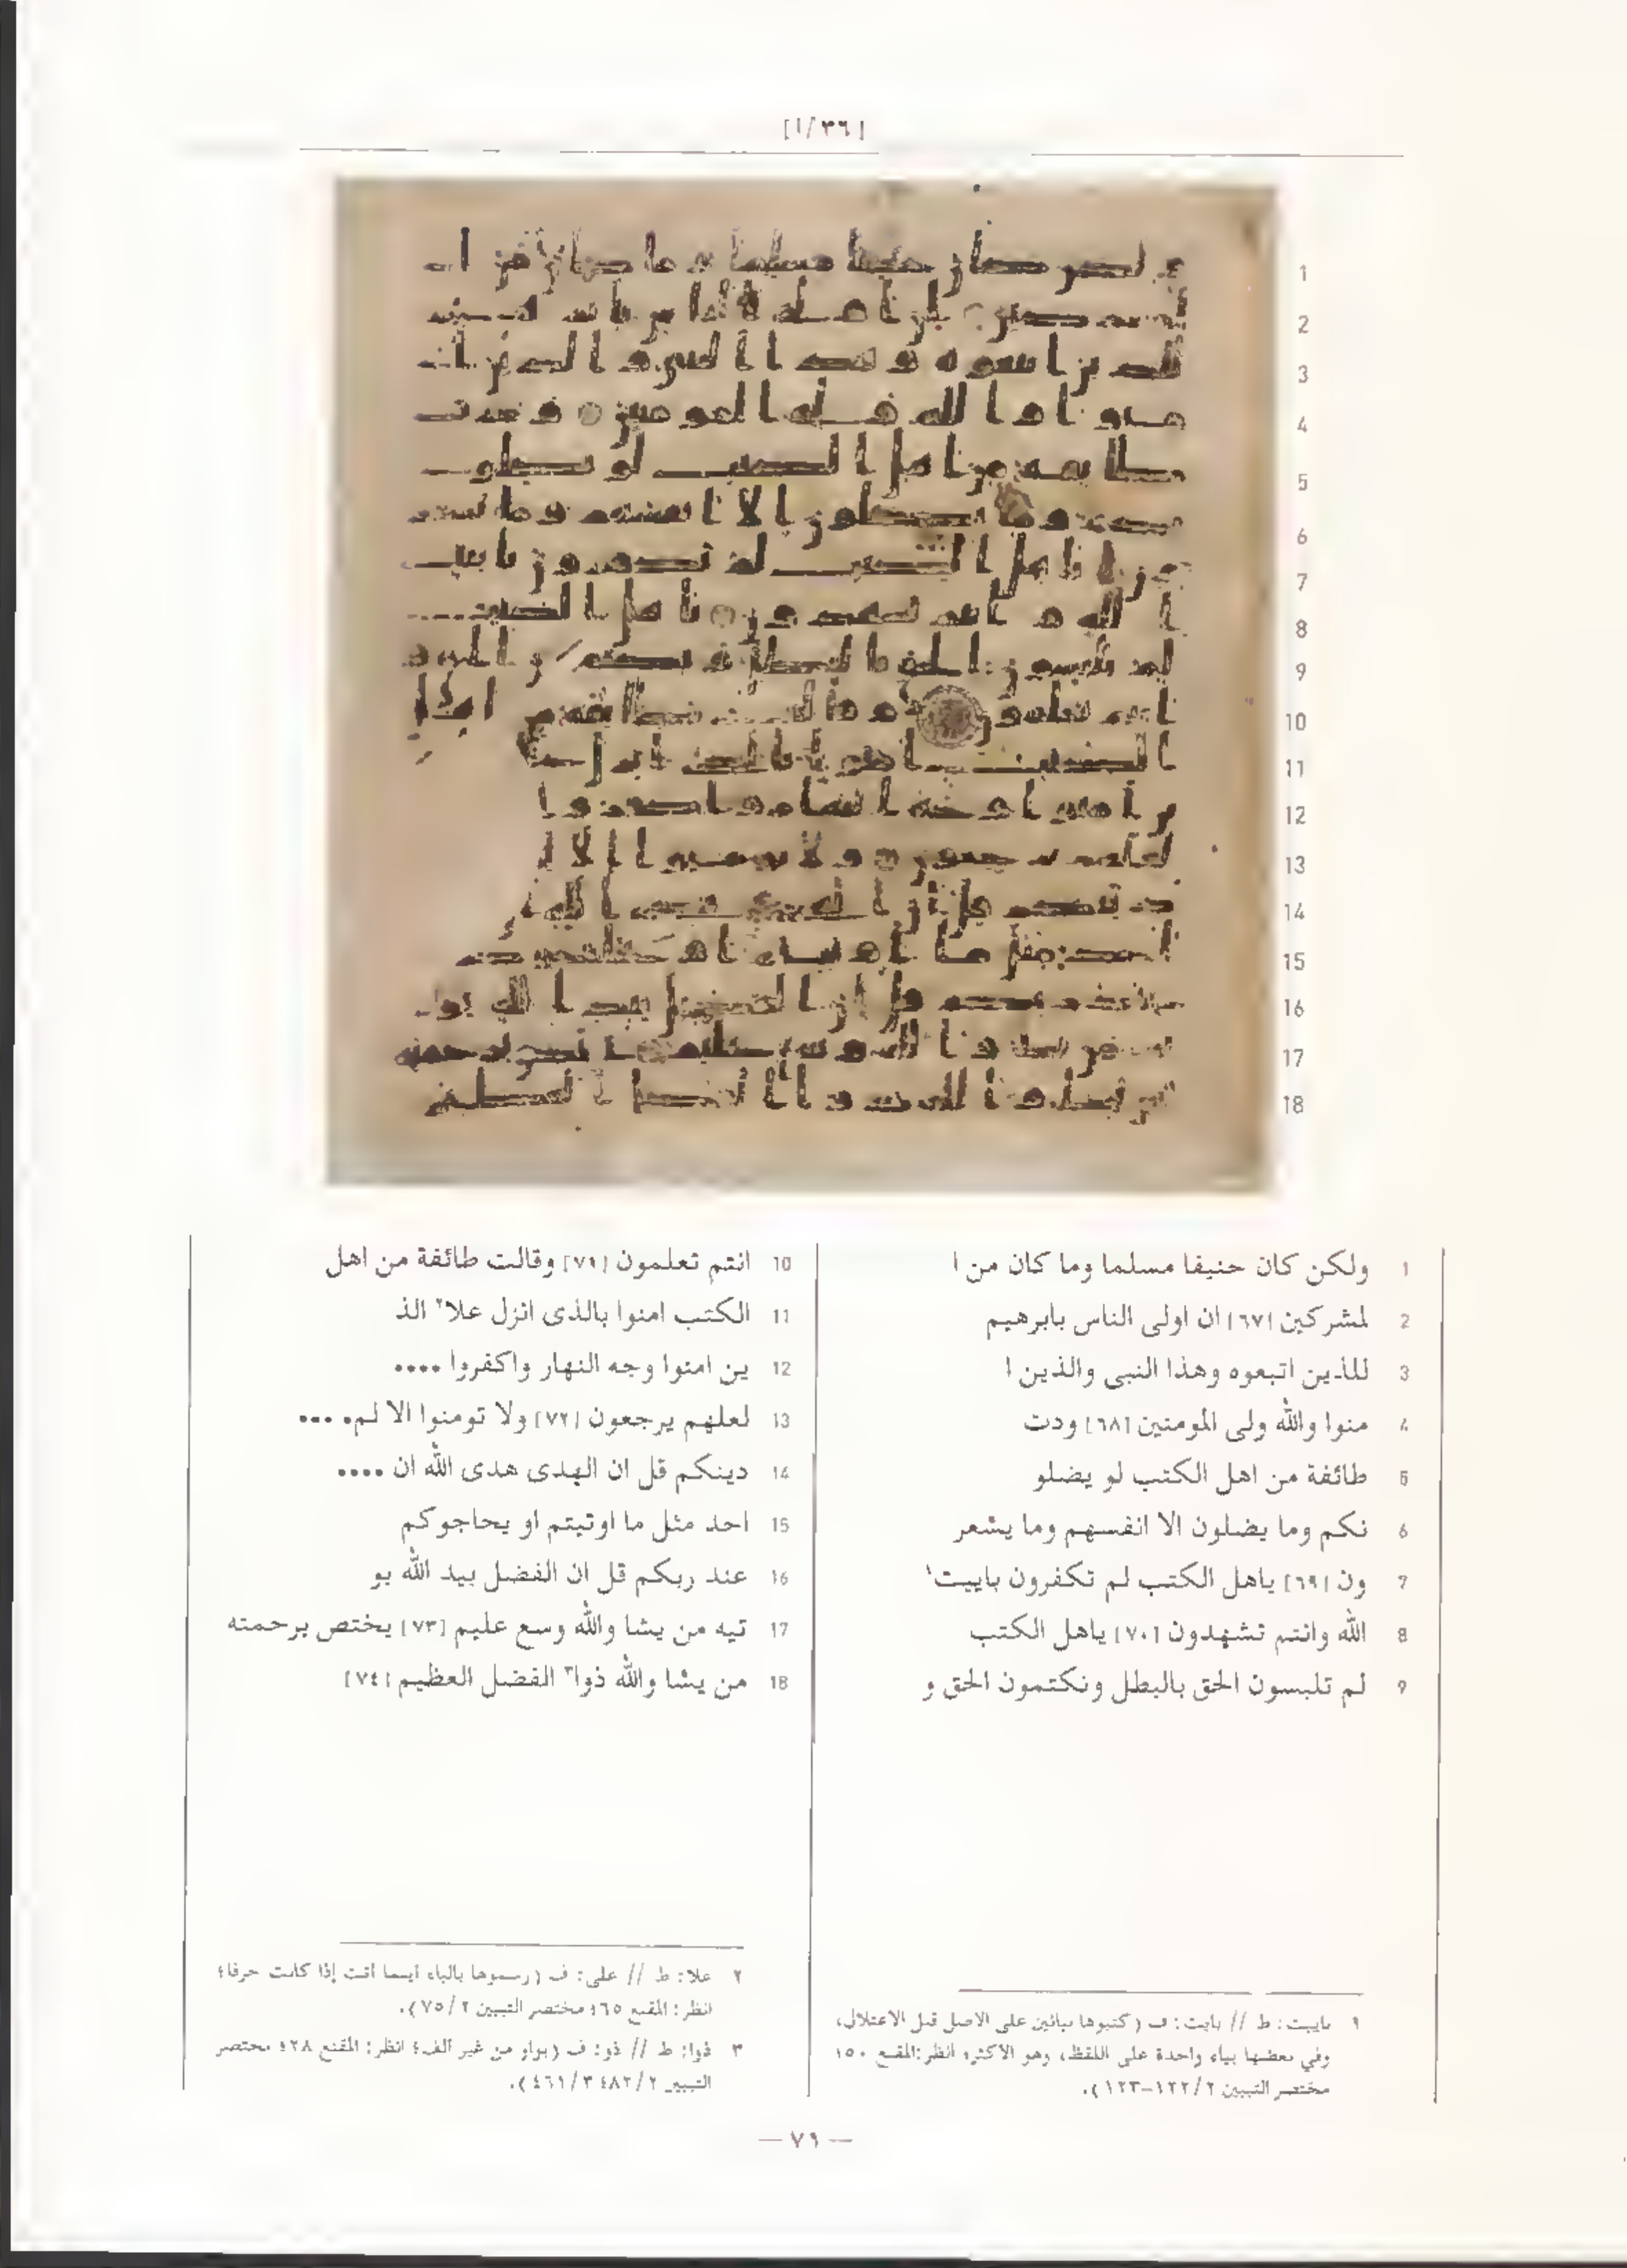 [١/٣٦]
1 ولكن كان حنيفا مسلما وما كان من ا
2 لمشركين [٦٧] ان اولى الناس بابرهيم
3 للذين اتبعوه وهذا النبى والذين ا
4 منوا والله ولى المومنين [٦٨] ودت
5 طائفة من اهل الكتب لو يضلو
6 نكم وما يضلون الا انفسهم وما يشعر
7 ون [٦٩] ياهل الكتب لم تكفرون باييت١
8 الله وانتم تشهدون [٧٠] ياهل الكتب
9 لم تلبسون الحق بالبطل وتكتمون الحق و
10 انتم تعلمون [٧١] وقالت طائفة من اهل
11 الكتب امنوا بالذى انزل علا٢ الذ
12 ين امنوا وجه النهار واكفروا ....
13 لعلهم يرجعون [٧٢] ولا تومنوا الا لم. ...
14 دينكم قل ان الهدى هدى الله ان ....
15 احد مثل ما اوتيتم او يحاجوكم
16 عند ربكم قل ان الفضل بيد الله يو
17 تيه من يشا والله وسع عليم [٧٣] يختص برحمته
18 من يشا والله ذوا٣ الفضل العظيم [٧٤]
١ باييت: ط // بايت: ف (كتبوها بيائين على الاصل قبل الاعتلال،
وفي بعضها بياء واحدة على اللفظ، وهو الاكثر؛ انظر: المقنع ٥٠؛
مختصر التبيين ١٢٢/٢-١٢٣).
٢ علا: ط // على: ف (رسموها بالياء اينما اتت إذا كانت حرفا؛
انظر: المقنع ٦٥؛ مختصر التبيين ٧٥/٢).
٣ ذوا: ط // ذو: ف (بواو من غير الف؛ انظر: المقنع ٢٨؛ مختصر
التبيين ٤٨٢/٢؛ ٤٦١/٣).
— ٧١ —